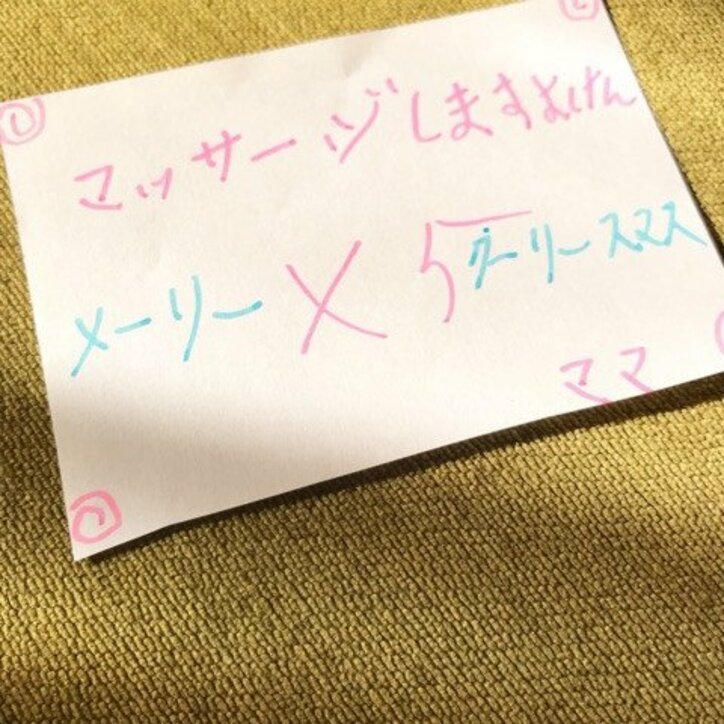 マッサージしますよけん
メーリー X グーリースマス
ママ